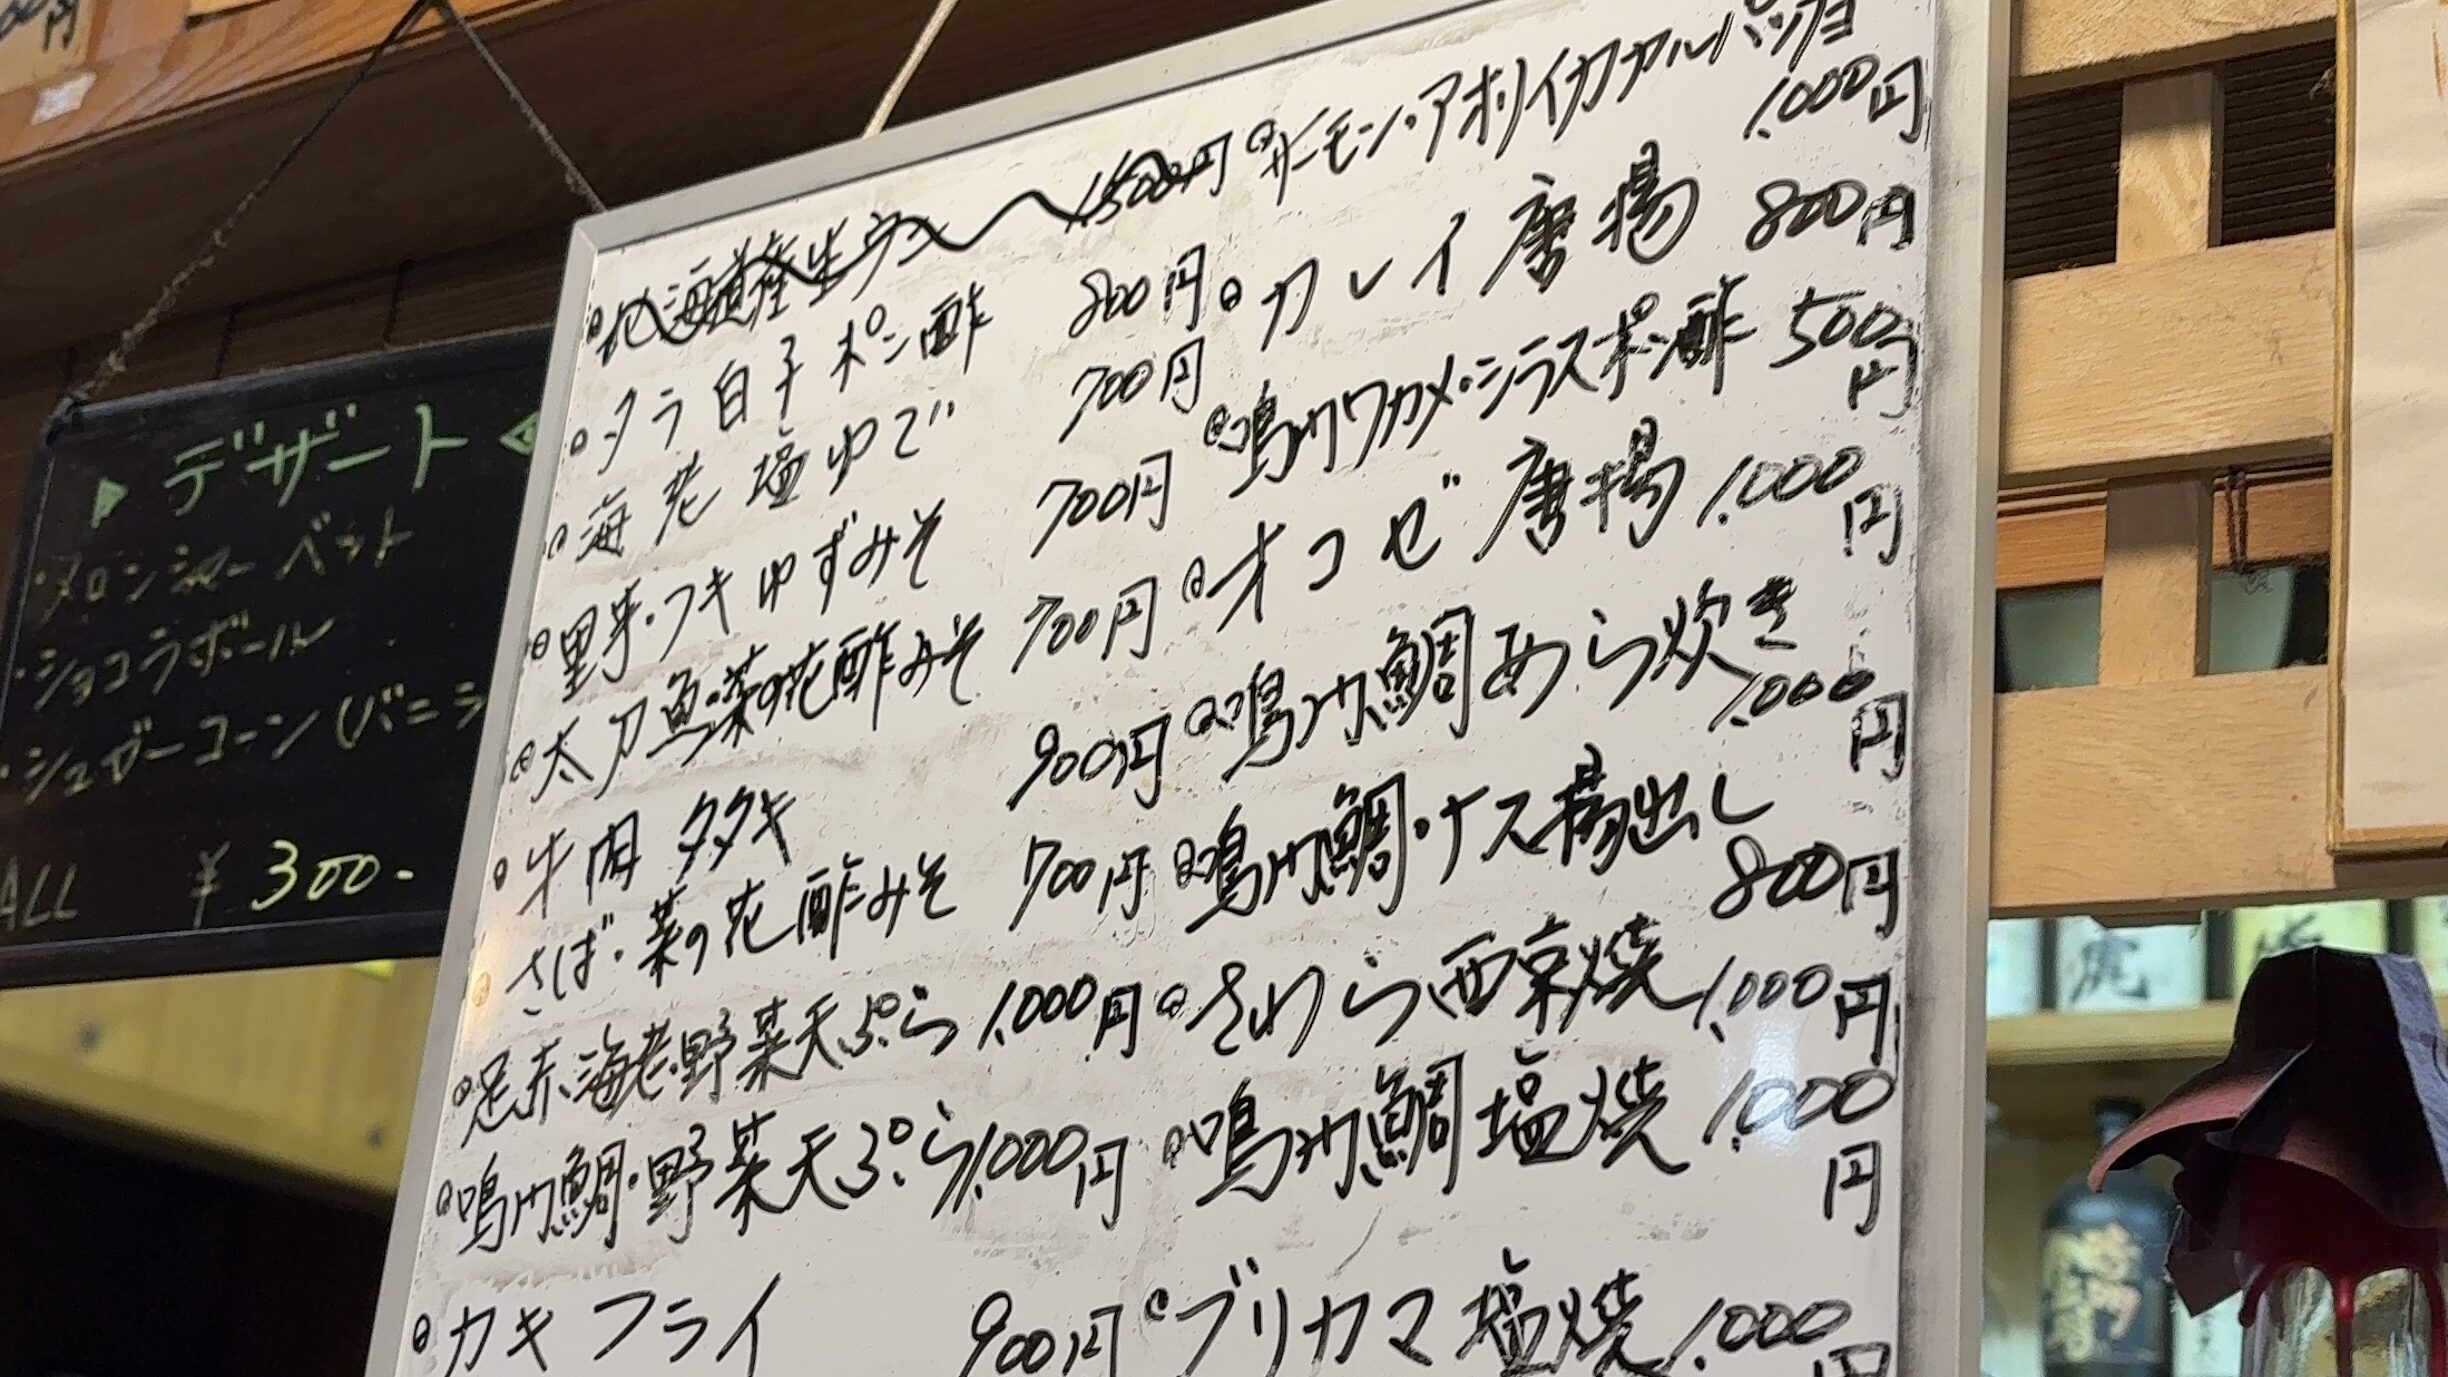 デザート
・メロンシャーベット
・ショコラボール
・シュガーコーン(バニラ
ALL ¥300-
北海道産生ウニ 1,500円
タラ白子ポン酢 800円
海老塩ゆで 700円
野芋・フキゆずみそ 700円
太刀魚・菜の花酢みそ 700円
牛肉タタキ 900円
さば・菜の花酢みそ 700円
足赤海老・野菜天ぷら 1,000円
鳴門鯛・野菜天ぷら 1,000円
カキフライ 900円
サーモン・アオリイカカルパッチョ
1,000円
カレイ唐揚 800円
鳴門ワカメ・シラスポン酢 500円
オコゼ唐揚 1,000円
鳴門鯛あら炊き
1,000円
鳴門鯛・ナス揚出し
800円
さわら西京焼 1,000円
鳴門鯛塩焼 1,000円
ブリカマ塩焼 1,000円
虎